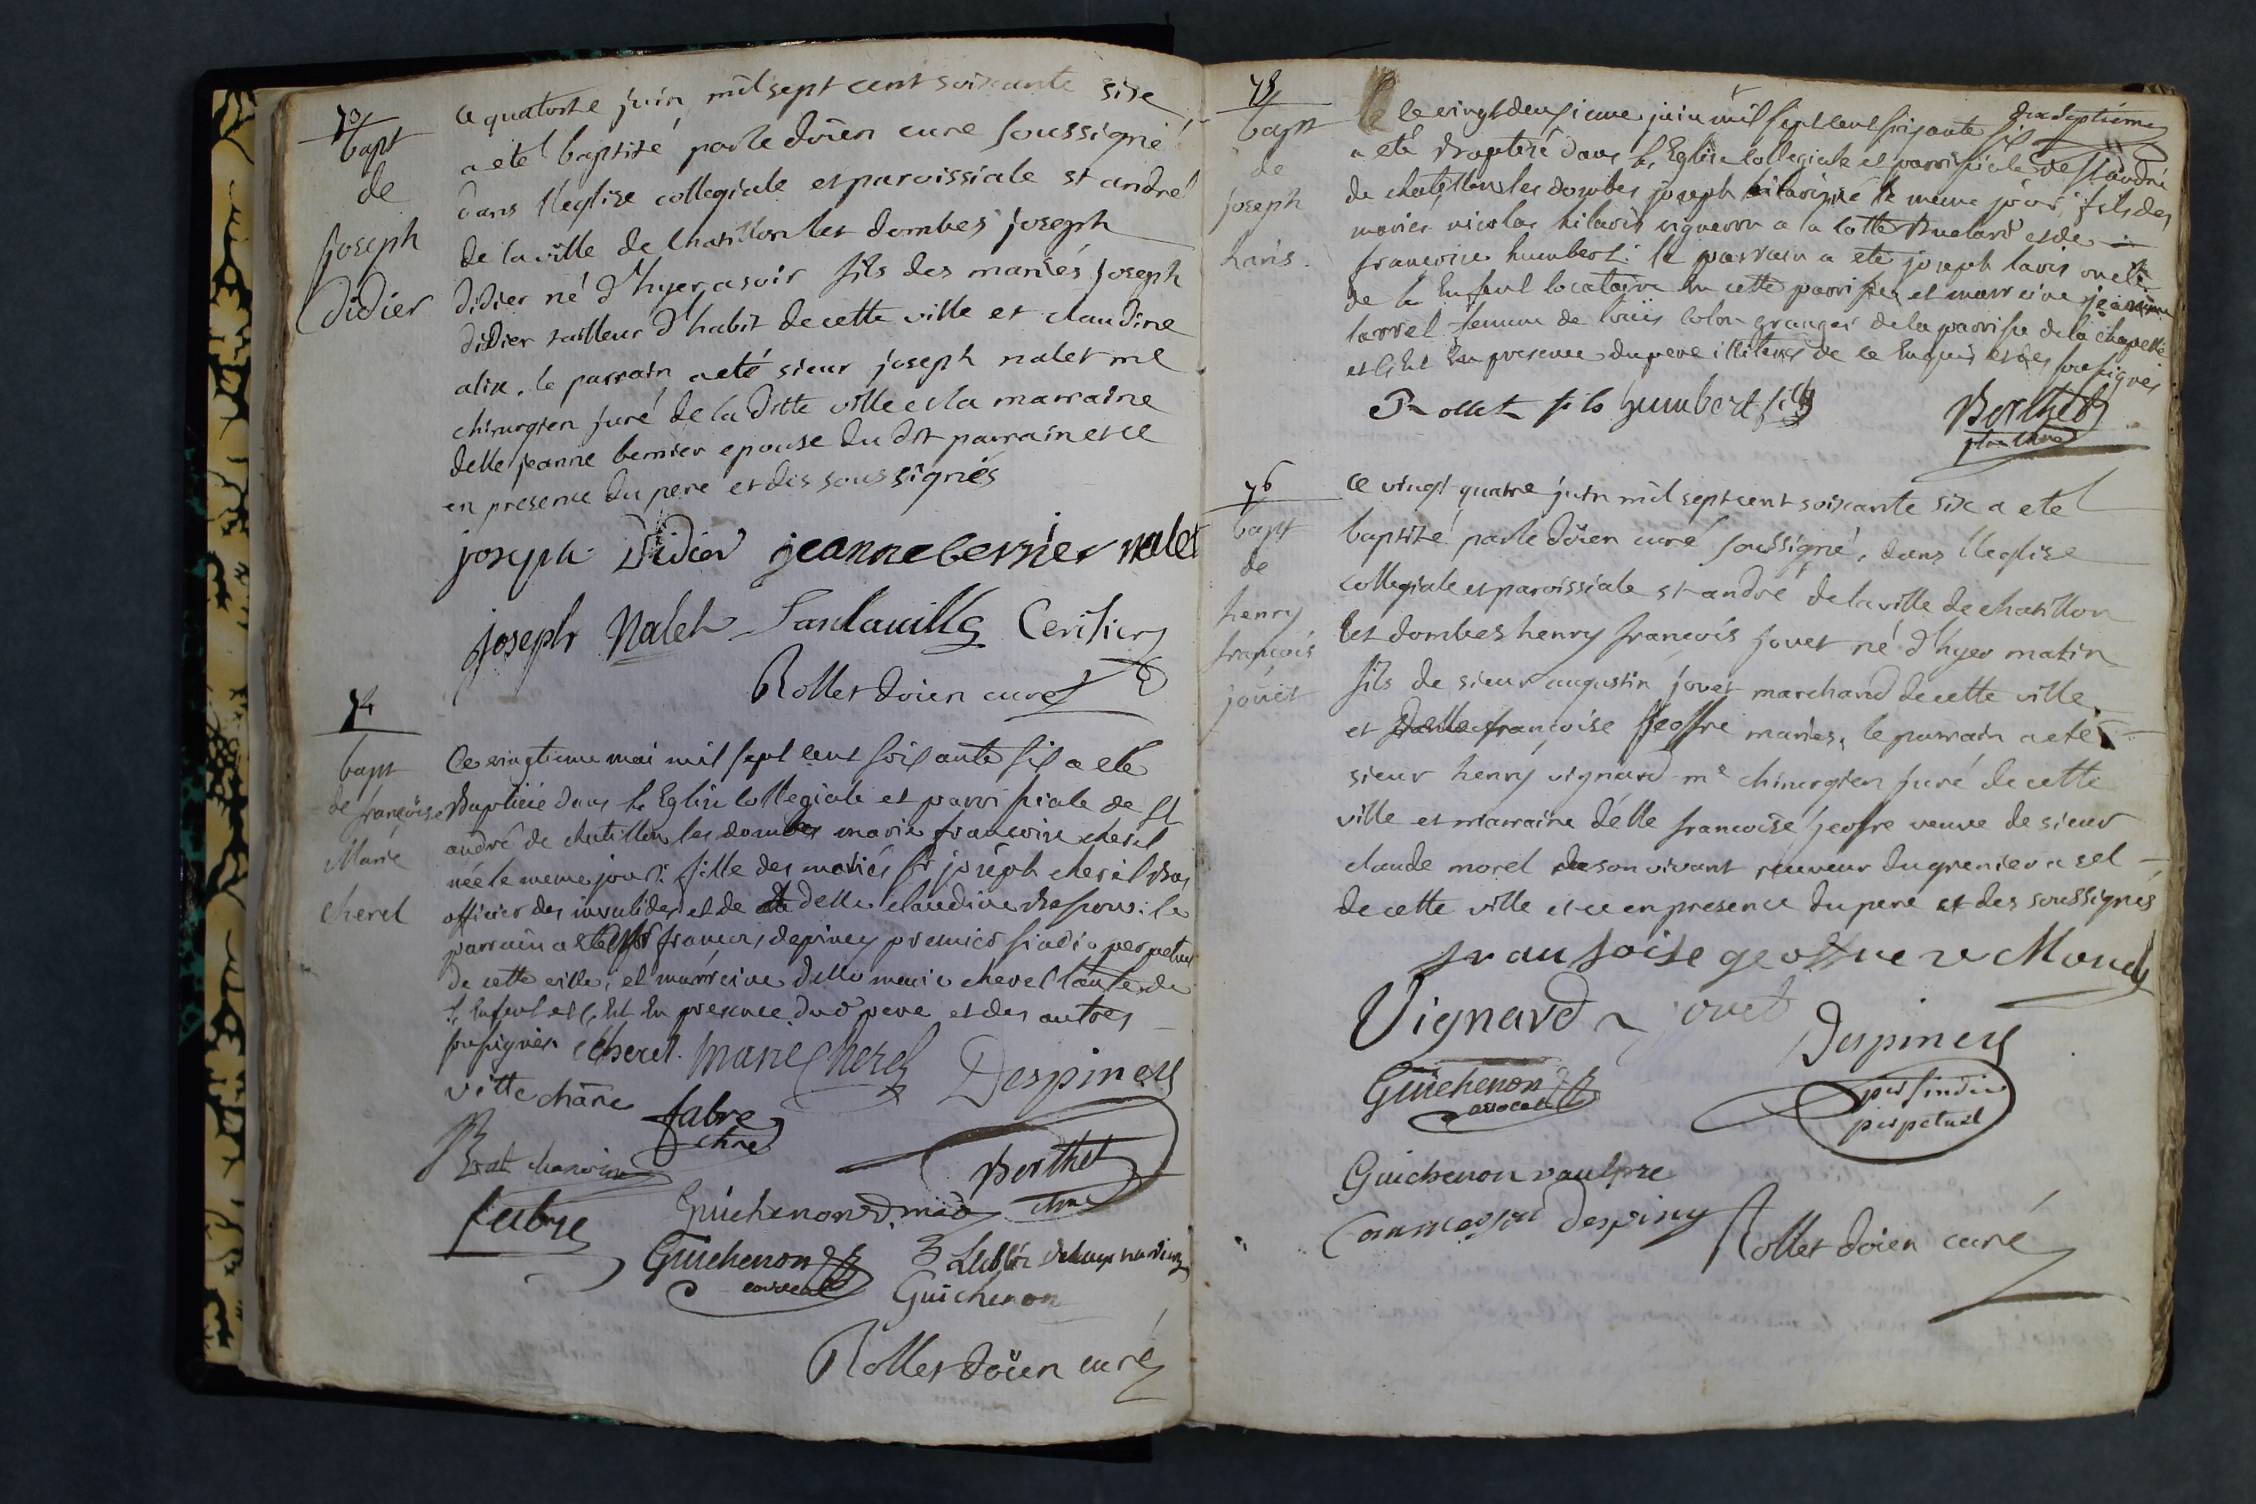 73
bapt
de
joseph
Didier
ce quatorze juin mil sept cent soixante sixe
a eté baptizé par le doïen curé soussigné
dans l'eglize collegiale et paroissiale st andré
de la ville de chatillon les dombes joseph
didier né d'hyer a soir fils des mariés joseph
didier tailleur d'habit de cette ville et claudine
alix. le parrain a eté sieur joseph nalet me
chirurgien juré de la ditte ville et la marraine
delle jeanne bernier epouse du dit parrain et ce
en presence du pere et des soussignés
joseph Didier jeanne bernier nalet
joseph Nalet
Rollet doïen curé
74
bapt
de françoise
Marie
cherel
Ce vingtieme mai mil sept cent soixante six a eté
Baptisée dans l'Eglise collegiale et parroissiale de St
andré de chatillon les dombes marie francoise cherel
née le meme jour: fille des mariés sr joseph cherel Bas
officier des invalides et de delle claudine : le
parrain a eté francois depiney premier sindic perpetuel
de cette ville, et marreine delle marie cherel tante de
l'Enfant et c'est En presence dud pere et des autres
sousignés cherel. marie Cherel Despiney
vitte chāne fabre
chne
Brat chanoine Berthet
chne
fabre Guichenon D. méd
Guichenon
avocat Guichenon
Rollet doïen curé
75
bapt
de
joseph
haris.
dixseptieme
le vingtdeusieme juin mil sept cent soixante six
a eté Baptisé dans l'Eglise collegiale et parroissiale de St andré
de chatillon les dombes joseph hilaris né le meme jour, fils des
mariés nicolas hilaris vigneron a la cotte Buelard et de
francoise humbert: le parrain a eté joseph laris oncle
de l'Enfant locataire En cette parroisse et marreine jeanne
larrel femme de louis colon granger de la parroisse de la chapelle
et c'est En presence du pere illiteré de ce Enquis et des sousignés
Rollet fils humbert fils Berthet
76
bapt
de
henry
françois
jouet
ce vingt quatre juin mil sept cent soixante six a eté
baptizé par le doïen curé soussigné, dans l'eglize
collegiale et paroissiale st andré de la ville de chatillon
les dombes henry françois jouet né d'hyer matin
fils de sieur augustin jouet marchand de cette ville
et delle françoise jeoffre mariés, le parrain a eté
sieur henry vignard me chirurgien juré de cette
ville et marraine delle francoise jeofre veuve de sieur
claude morel de son vivant receveur du grenier a sel
de cette ville et ce en presence du pere et des soussignés
fransoise geoffre ve
Vignard jouet Despiney
per sindic
perpetuel
Guichenon
avocat
Guichenon vaulpre
Commerson despiney Rollet doïen curé